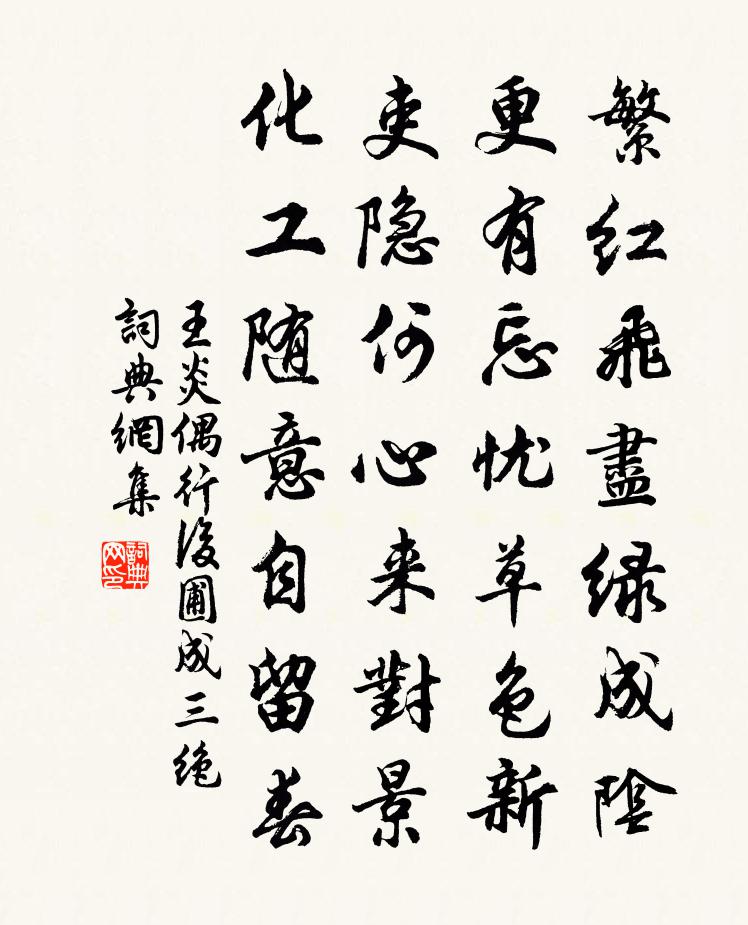 繁红飛盡緑成陰
更有忘忧草色新
吏隐何心来對景
化工随意自留春
王炎偶行後圃成三绝
詞典網集
詞典网印